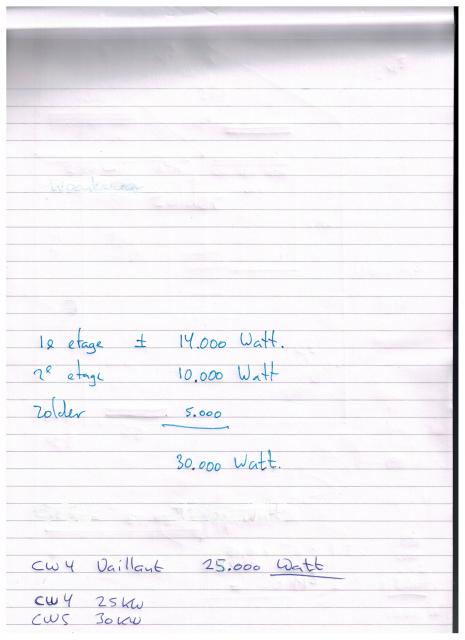 1e etage ± 14.000 Watt.
2e etage 10.000 Watt
Zolder 5.000
30.000 Watt.
CW4 Vaillant 25.000 Watt
CW4 25kW
CW5 30kW